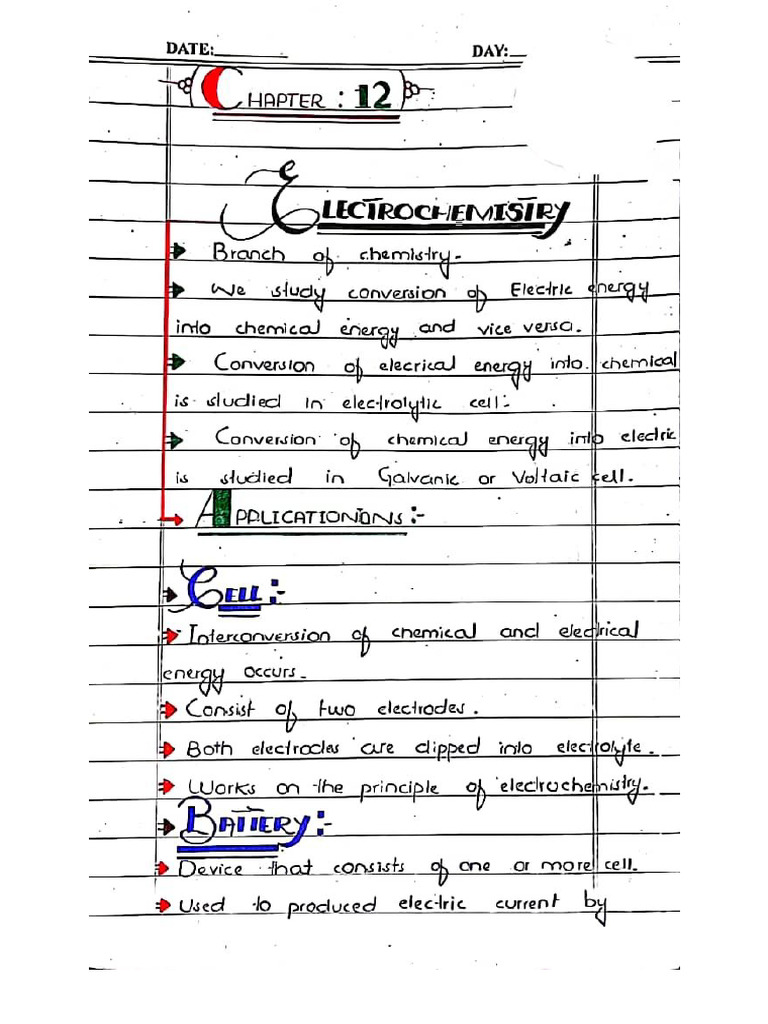 DATE:
DAY:
CHAPTER : 12
ELECTROCHEMISTRY
Branch of chemistry.
We study conversion of Electric energy
into chemical energy and vice versa.
Conversion of elecrical energy into chemical
is studied in electrolytic cell.
Conversion of chemical energy into electric
is studied in Galvanic or Voltaic cell.
APPLICATIONIONS :-
CELL :-
Interconversion of chemical and electrical
energy occurs.
Consist of two electrodes.
Both electrodes are dipped into electrolyte.
Works on the principle of electrochemistry.
BATTERY :-
Device that consists of one or more cell.
Used to produced electric current by